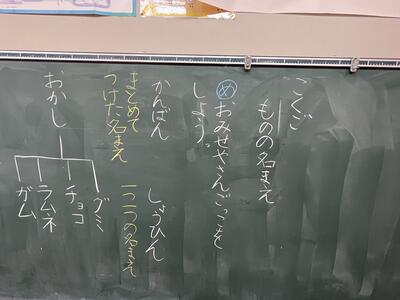 こくご
ものの名まえ
め おみせやさんごっこを
しよう。
かんばん　しょうひん
まとめて
つけた名まえ　一つ一つの名まえ
おかし
グミ
チョコ
ラムネ
ガム